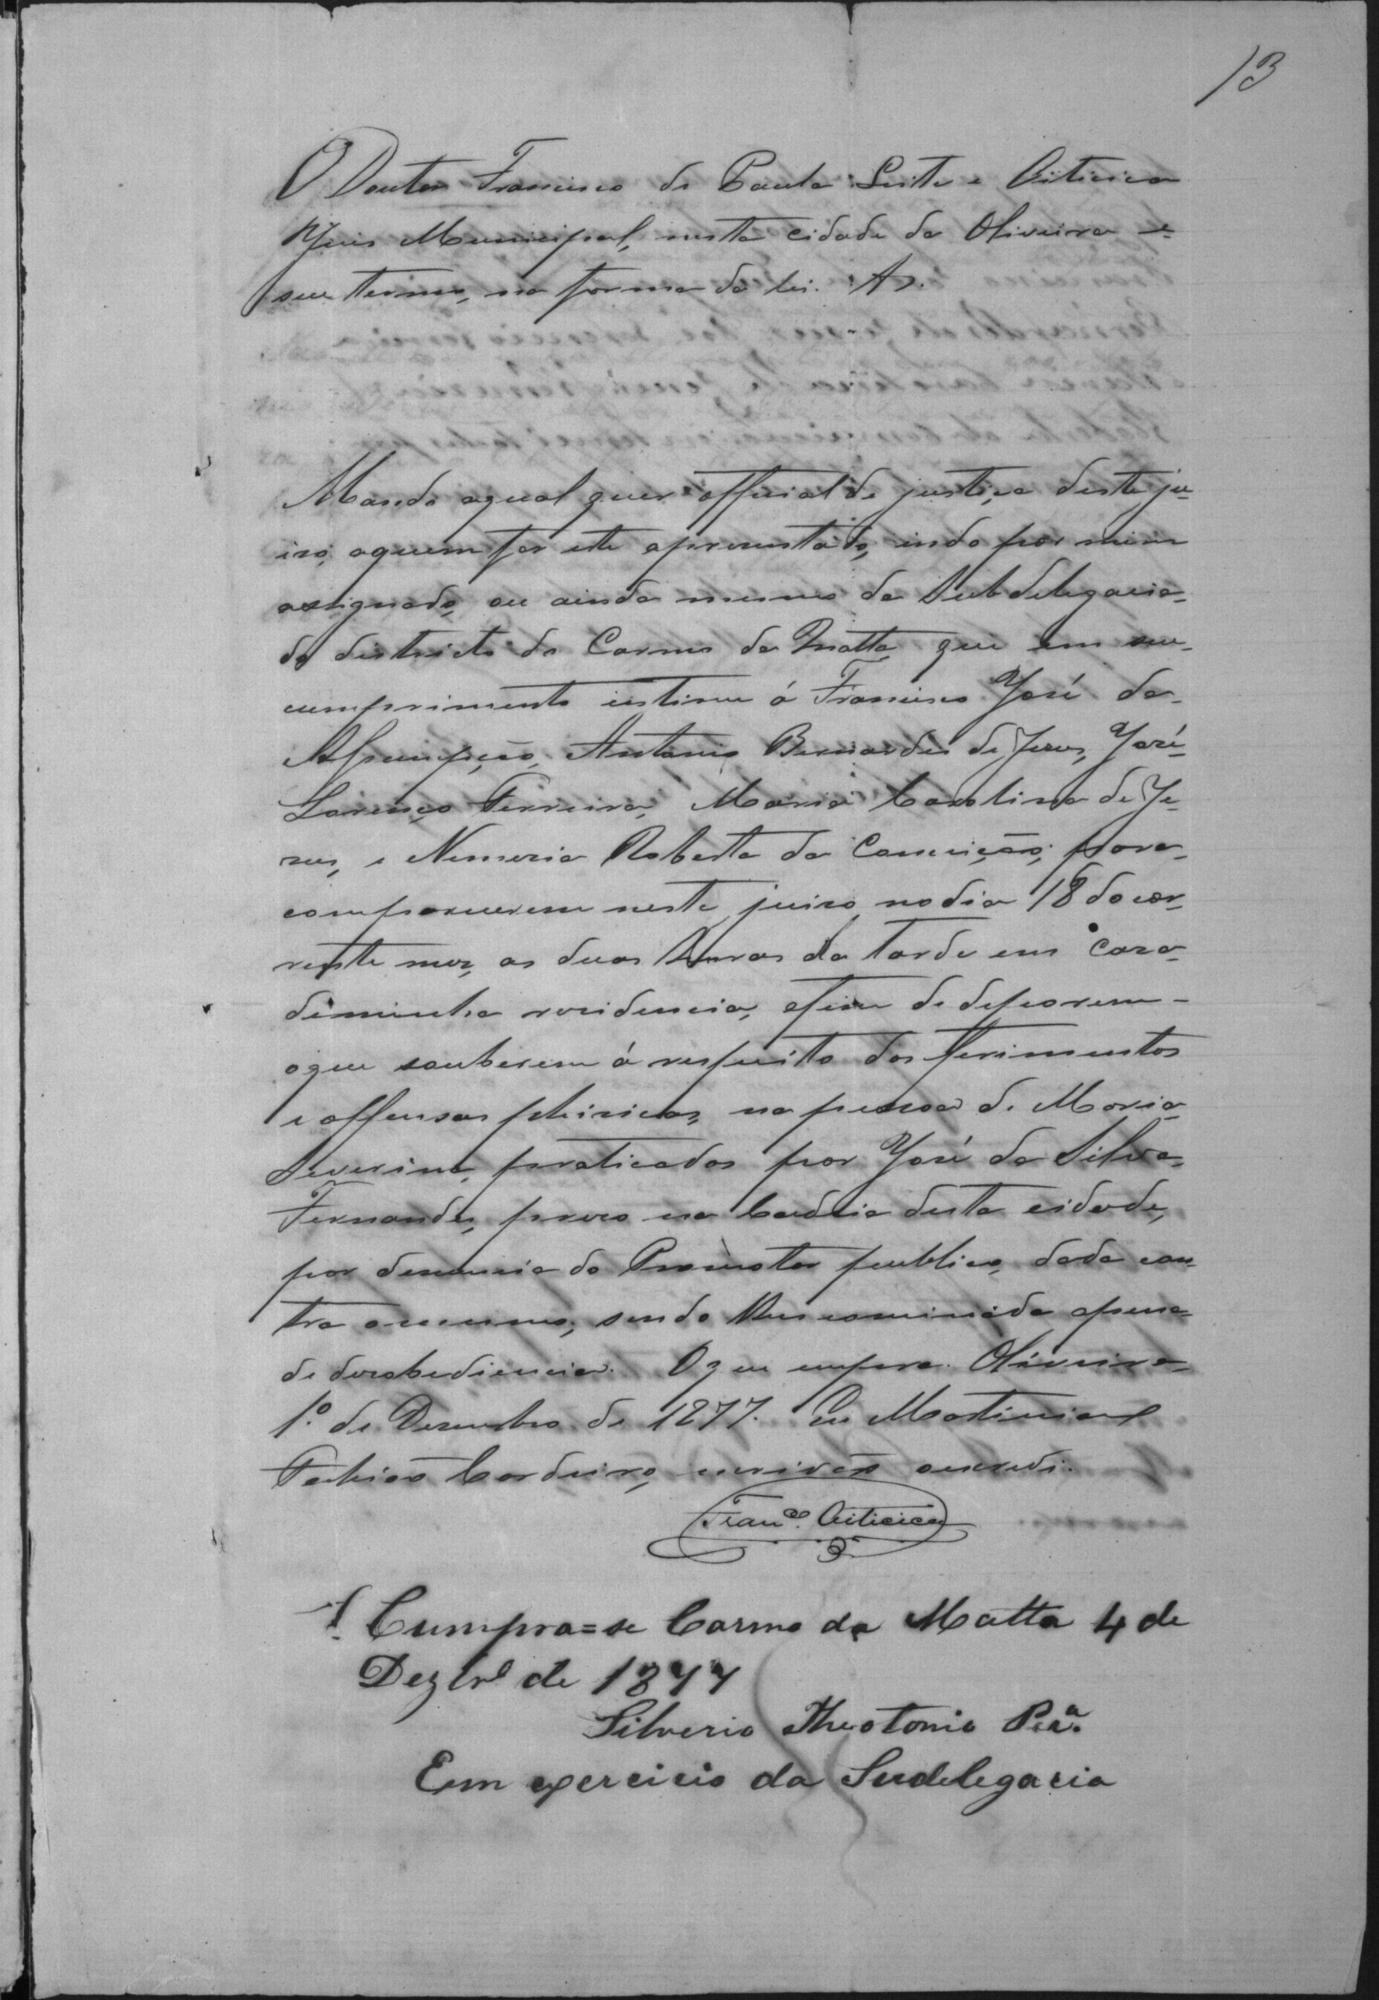 13
O Doutor Francisco de Paula Leite e Oiticica
Juis Municipal, nesta cidade da Oliveira e
seu termo, na forma da lei. &.
Mando aqual quer official de justiça deste ju-
iso, aquem for este apresentado, indo por mim
assignado, ou ainda mesmo da Subdelegacia
do districto do Carmo da Matta, que em seu
cumprimento intime á Francisco José da
Assumpção, Antonio Bernardes de Jesus, José
Lourenço Ferreira, Maria Carolina de Je-
sus, e Nemezia Roberta da Conceição, para
comparecerem neste juiso, no dia 18 do cor-
rente mez, as duas horas da tarde em casa
deminha residencia, afim de deporem
oque souberem á respeito dos ferimentos
e offensas phisicas, na pessoa de Maria
Severina, praticados por José da Silva
Fernandes, preso na Cadeia desta cidade,
por denuncia do Promotor publico, dada con-
tra o mesmo, sendo lhes cominada apena
de desobediencia. O que cumpra. Oliveira
1º. de Desembro de 1877. Eu Martiniano
Fabião Cordeiro, escrivão oescrevi.
Franco. Oiticica
Cumpra=se Carmo da Matta 4 de
Dezbrº de 1877
Silverio Theotonio Pera.
Em exercicio da Sudelegacia